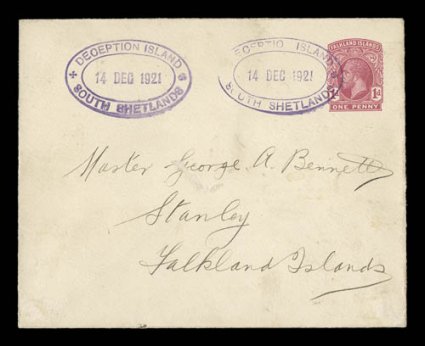 DECEPTION ISLAND
14 DEC 1921
SOUTH SHETLANDS
ECEPTIO ISLAND
14 DEC 1921
S UTH SHETLANDS
FALKLAND ISLANDS
1d
ONE PENNY
Master George A. Bennett
Stanley
Falkland Islands